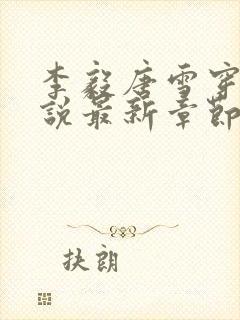 李毅唐雪穿
说最新章节
扶朗